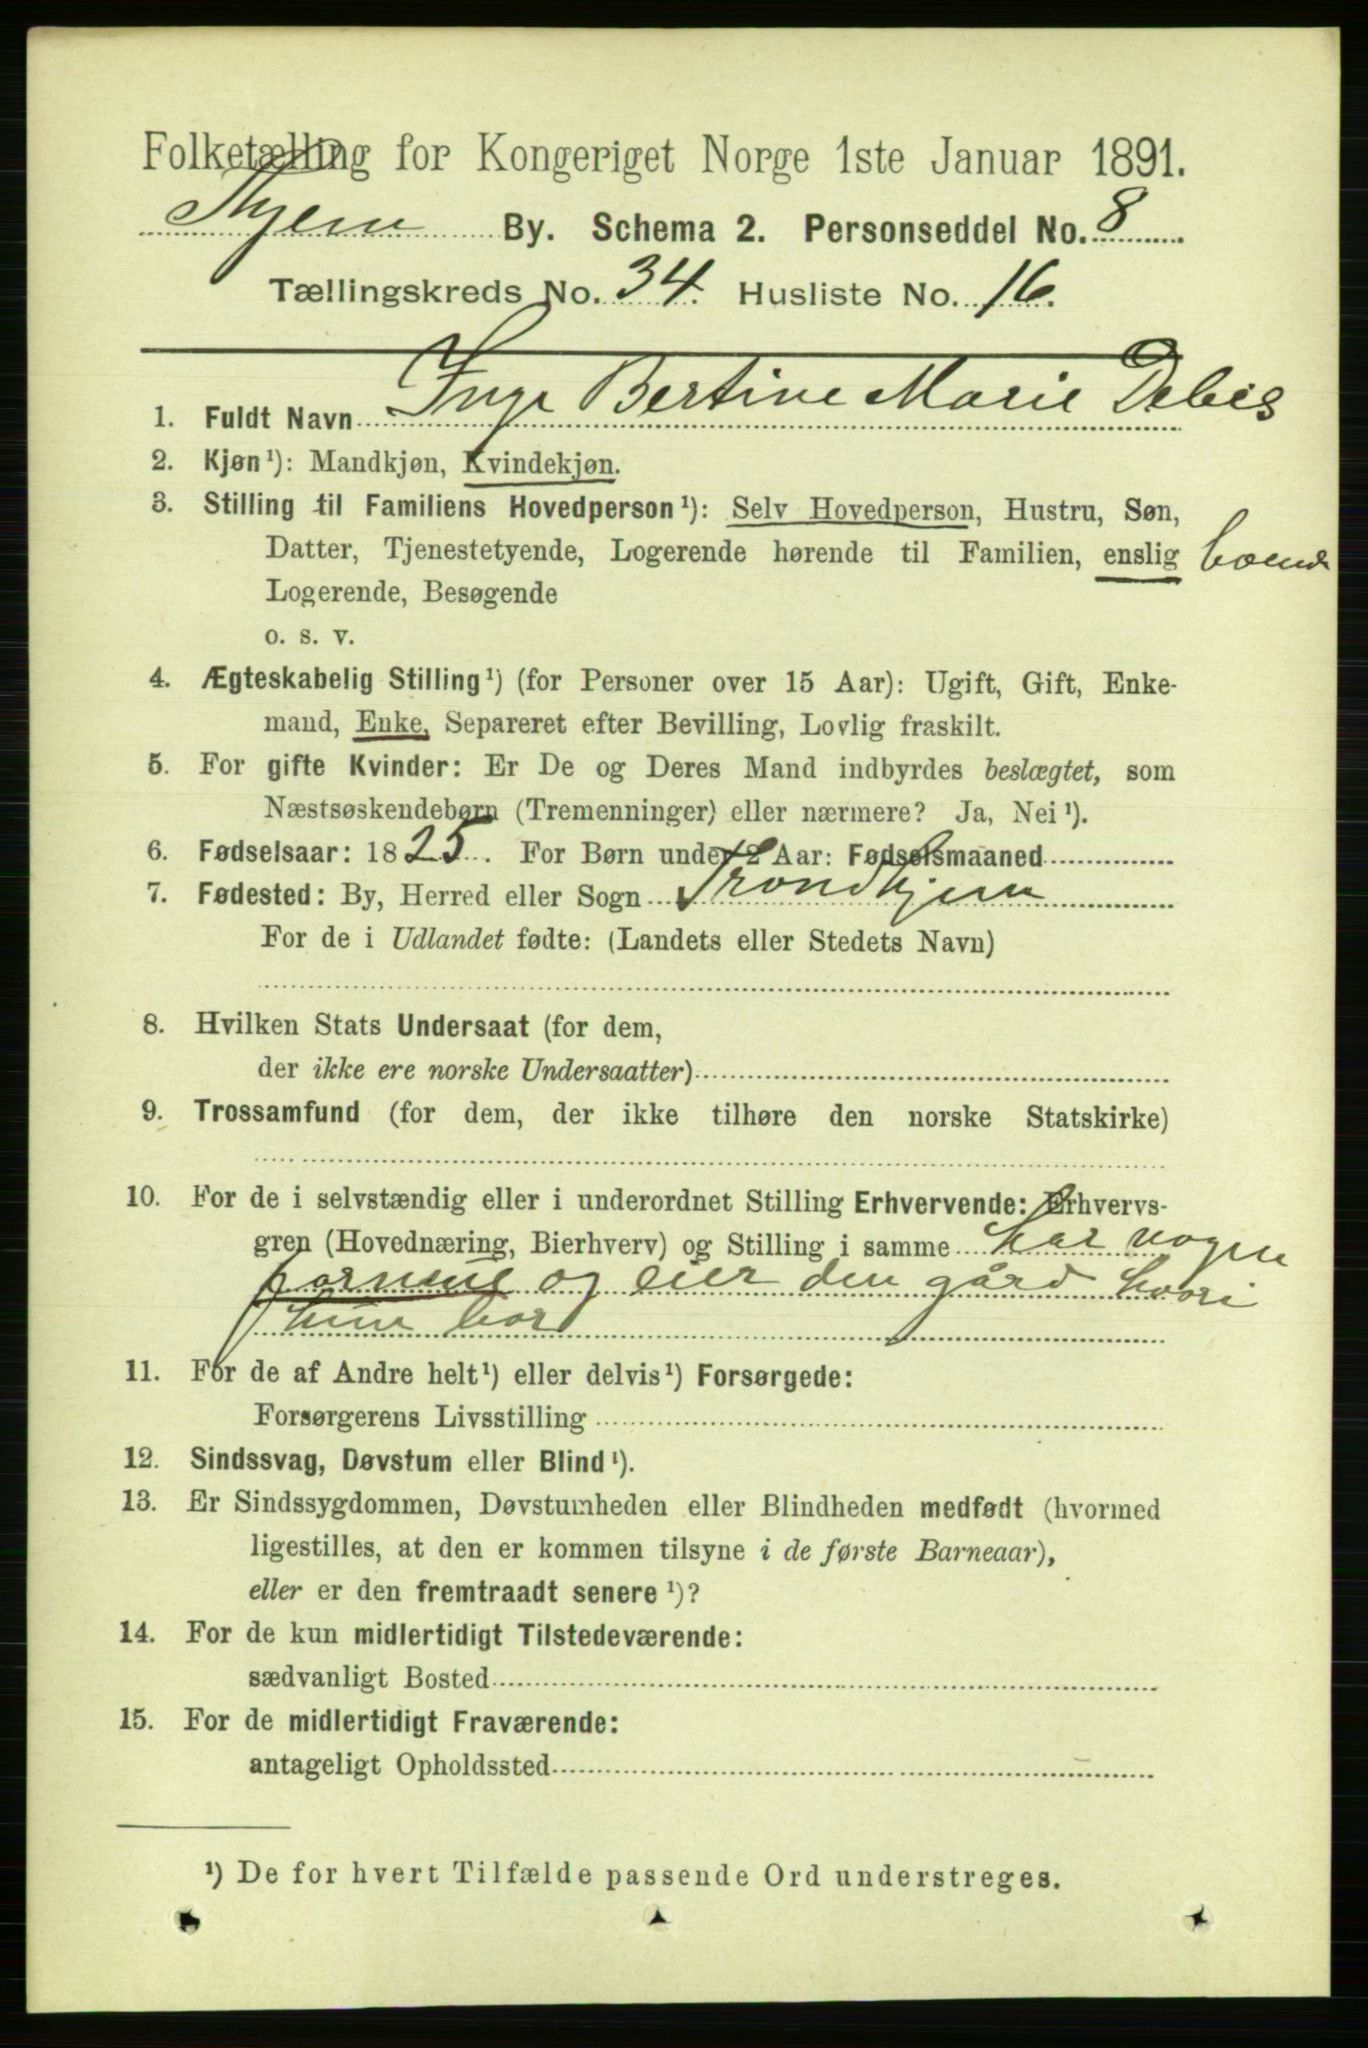 Folketælling for Kongeriget Norge 1ste Januar 1891.
Thjem By. Schema 2. Personseddel No. 8
Tællingskreds No. 34. Husliste No. 16.
1. Fuldt Navn Inge Bertine Marie Debes
2. Kjøn¹): Mandkjøn, Kvindekjøn.
3. Stilling til Familiens Hovedperson¹): Selv Hovedperson, Hustru, Søn,
Datter, Tjenestetyende, Logerende hørende til Familien, enslig boende
Logerende, Besøgende
o. s. v.
4. Ægteskabelig Stilling¹) (for Personer over 15 Aar): Ugift, Gift, Enke-
mand, Enke, Separeret efter Bevilling, Lovlig fraskilt.
5. For gifte Kvinder: Er De og Deres Mand indbyrdes beslægtet, som
Næstsøskendebørn (Tremenninger) eller nærmere? Ja, Nei¹).
6. Fødselsaar: 1825. For Børn under 2 Aar: Fødselsmaaned
7. Fødested: By, Herred eller Sogn Trondhjem
For de i Udlandet fødte: (Landets eller Stedets Navn)
8. Hvilken Stats Undersaat (for dem,
der ikke ere norske Undersaatter)
9. Trossamfund (for dem, der ikke tilhøre den norske Statskirke)
10. For de i selvstændig eller i underordnet Stilling Erhvervende: Erhvervs-
gren (Hovednæring, Bierhverv) og Stilling i samme har nogen
formue og eier den gård hvori
hun bor
11. For de af Andre helt¹) eller delvis¹) Forsørgede:
Forsørgerens Livsstilling
12. Sindssvag, Døvstum eller Blind¹).
13. Er Sindssygdommen, Døvstumheden eller Blindheden medfødt (hvormed
ligestilles, at den er kommen tilsyne i de første Barneaar),
eller er den fremtraadt senere¹)?
14. For de kun midlertidigt Tilstedeværende:
sædvanligt Bosted
15. For de midlertidigt Fraværende:
antageligt Opholdssted
¹) De for hvert Tilfælde passende Ord understreges.